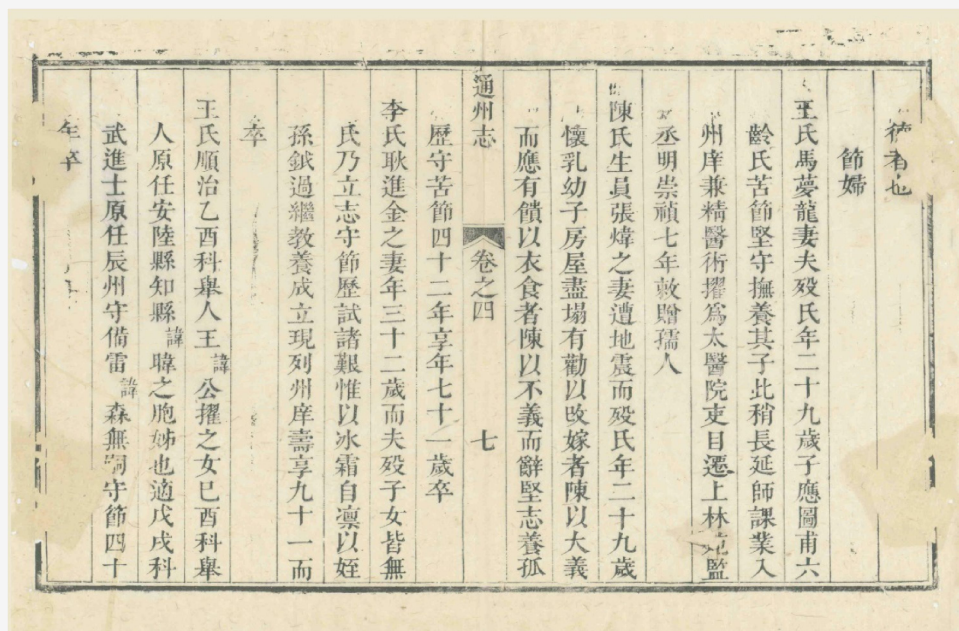 德者也
節婦
王氏馬夢龍妻夫歿氏年二十九歲子應圖甫六
齡氏苦節堅守撫養其子此稍長延師課業入
州庠兼精醫術擢爲太醫院吏目遷上林苑監
丞明崇禎七年敕贈孺人
陳氏生員張煒之妻遭地震而歿氏年二十九歲
懷乳幼子房屋盡塌有勸以改嫁者陳以大義
而應有饋以衣食者陳以不義而辭堅志養孤
通州志 卷之四 七
歷守苦節四十二年享年七十一歲卒
李氏耿進金之妻年三十二歲而夫歿子女皆無
氏乃立志守節歷試諸艱惟以冰霜自凛以姪
孫鉞過繼教養成立現列州庠壽享九十一而
卒
王氏順治乙酉科舉人王諱公擢之女已酉科舉
人原任安陸縣知縣諱暐之胞姊也適戊戌科
武進士原任辰州守備雷諱森無嗣守節四十
年卒